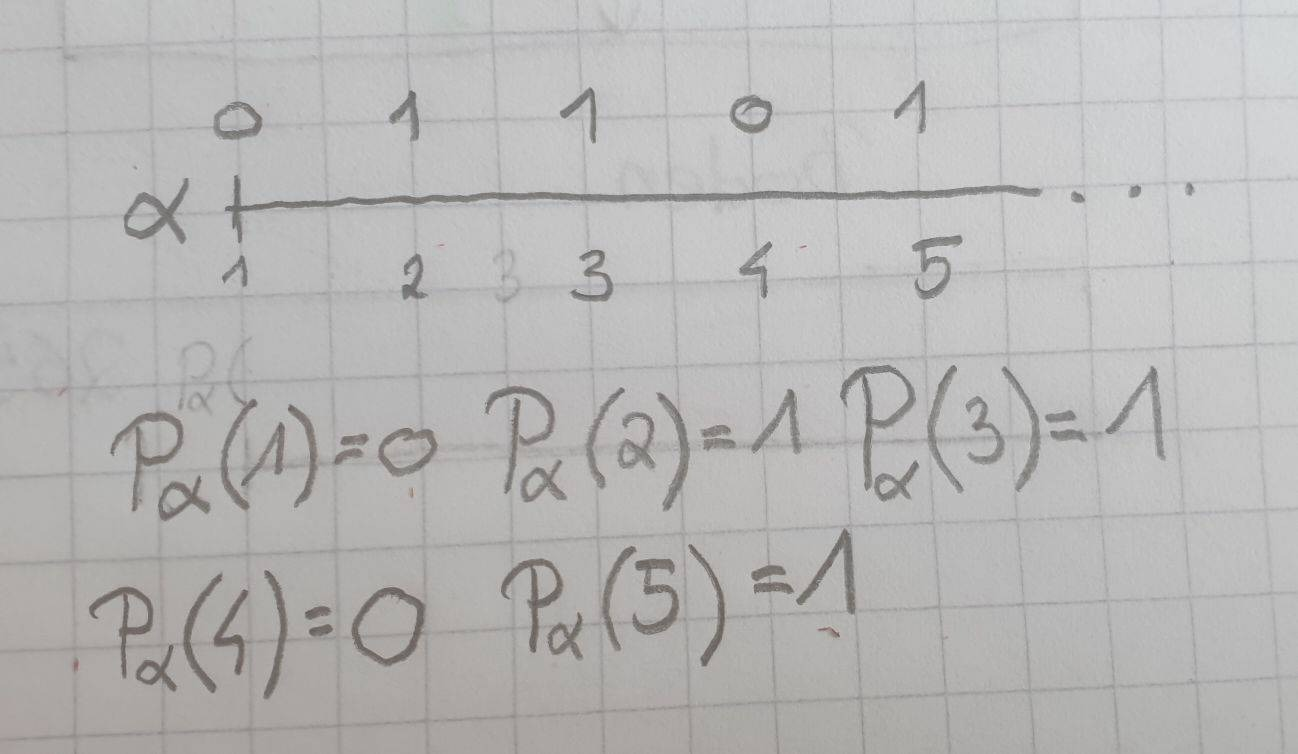 0 1 1 0 1
α
1 2 3 4 5
P_α(1)=0 P_α(2)=1 P_α(3)=1
P_α(4)=0 P_α(5)=1